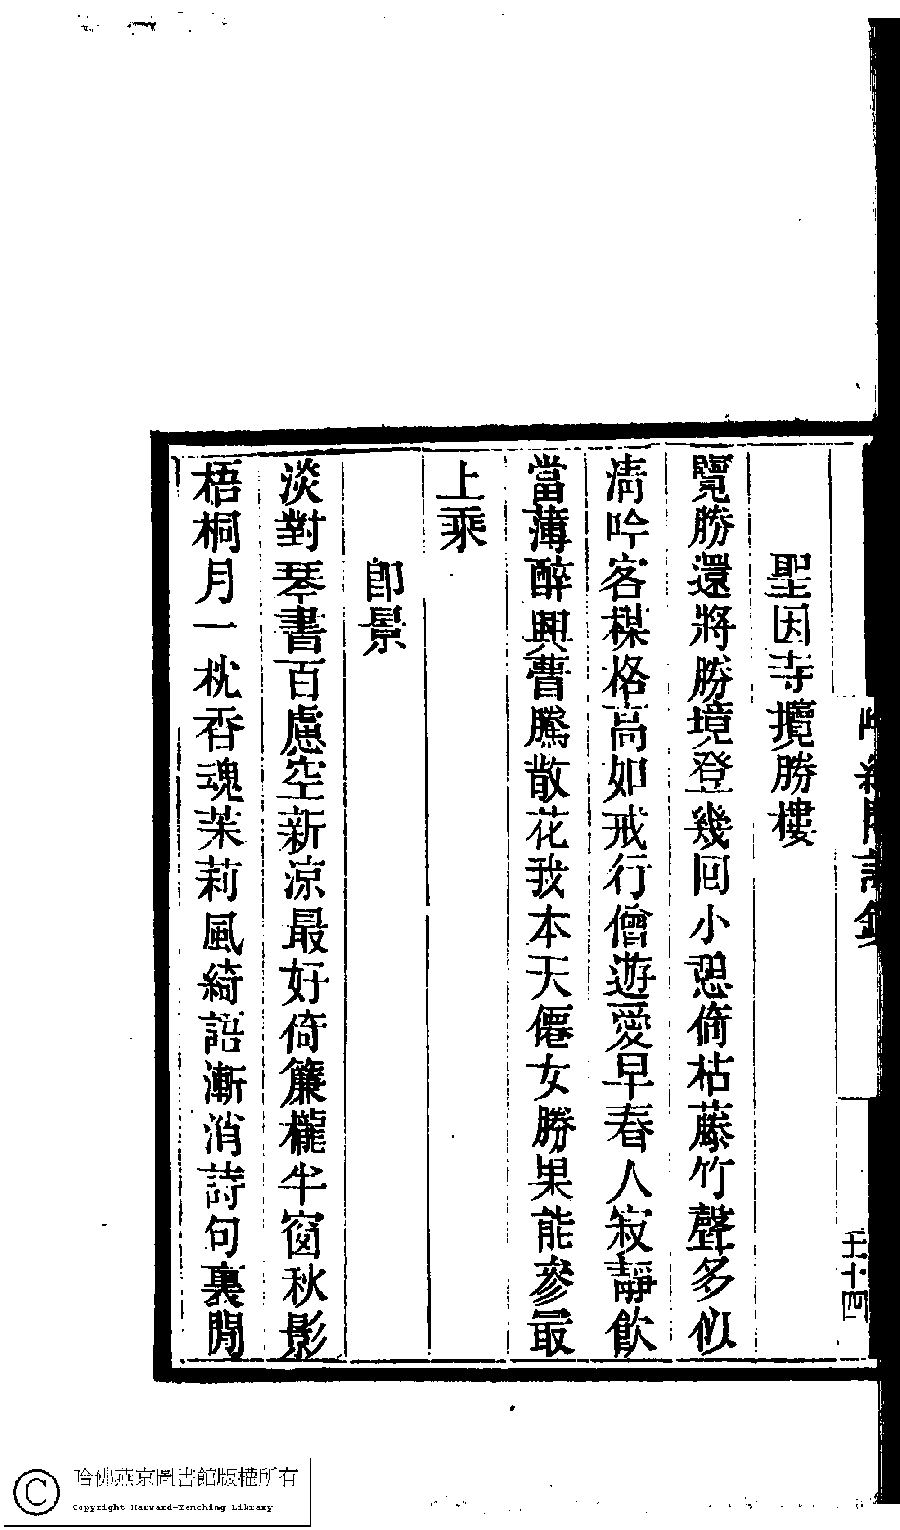 聖因寺攬勝樓
覽勝還將勝境登幾回小憩倚枯藤竹聲多似
淸吟客槑格高如戒行僧遊愛早春人寂靜飲
當薄醉興瞢騰散花我本天僊女勝果能參最
上乘
卽景
淡對琴書百慮空新涼最好倚簾櫳半窗秋影
梧桐月一枕香魂茉莉風綺語漸消詩句裏閒
哈佛燕京圖書館版權所有
Copyright Harvard-Yenching Library